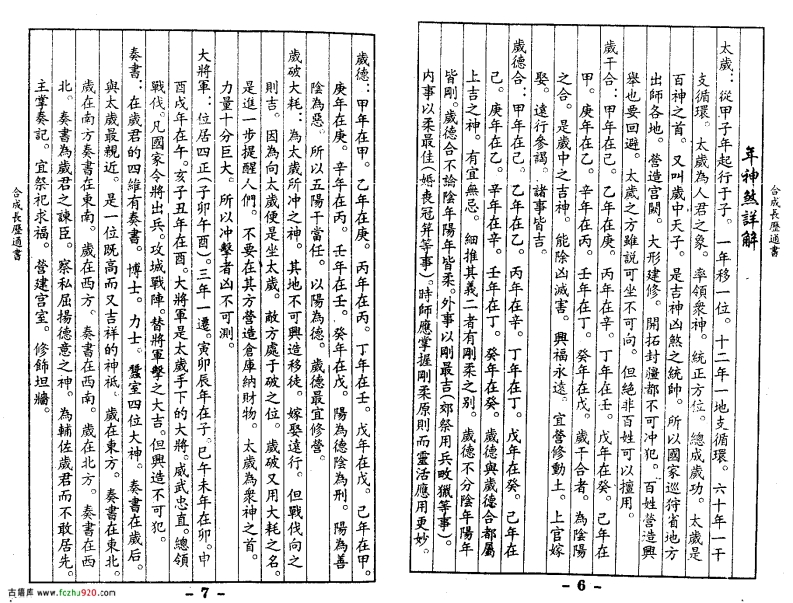 合成長曆通書
年神煞詳解
太歲：從甲子年起行于子。一年移一位。十二年一地支循環。六十年一干
支循環。太歲為人君之象。率領衆神。統正方位。總成歲功。太歲是
百神之首。又叫歲中天子。是吉神凶煞之統帥。所以國家巡狩省地方
出師各地。營造宫闕。大形建修。開拓封疆都不可冲犯。百姓營造興
舉也要回避。太歲之方雖説可坐不可向。但絶非百姓可以擅用。
歲干合：甲年在己。乙年在庚。丙年在辛。丁年在壬。戊年在癸。己年在
甲。庚年在乙。辛年在丙。壬年在丁。癸年在戊。歲干合者。為陰陽
之合。是歲中之吉神。能除凶滅害。興福永遠。宜營修動土。上官嫁
娶。遠行參謁。諸事皆吉。
歲德合：甲年在己。乙年在乙。丙年在辛。丁年在丁。戊年在癸。己年在
己。庚年在乙。辛年在辛。壬年在丁。癸年在癸。歲德與歲德合都屬
上吉之神。有宜無忌。細推其義二者有剛柔之别。歲德不分陰年陽年
皆剛。歲德合不論陰年陽年皆柔。外事以剛最吉（郊祭用兵畋獵等事）。
内事以柔最佳（婚喪冠笄等事）。時師應掌握剛柔原則而靈活應用更妙。
- 6 -
歲德：甲年在甲。乙年在庚。丙年在丙。丁年在壬。戊年在戊。己年在甲
庚年在庚。辛年在丙。壬年在壬。癸年在戊。陽為德陰為刑。陽為善
陰為惡。所以五陽干當任。以陽為德。歲德最宜修營。
歲破大耗：為太歲所冲之神。其地不可興造移徒。嫁娶遠行。但戰伐向之
則吉。因為向太歲便是坐太歲。敵方處于破之位。歲破又用大耗之名。
是進一步提醒人們。不要在其方營造倉庫納財物。太歲為衆神之首。
力量十分巨大。所以冲擊者凶不可測。
大將軍：位居四正（子卯午酉）。三年一遷。寅卯辰年在子。巳午未年在卯。申
酉戌年在午。亥子丑年在酉。大將軍是太歲手下的大將。威武忠直。總領
戰伐。凡國家令將出兵。攻城戰陣。替將軍擊之大吉。但興造不可犯。
奏書：在歲君的四維有奏書。博士。力士。蠶室四位大神。奏書在歲后。
與太歲最親近。是一位既高而又吉祥的神祇。歲在東方。奏書在東北。
歲在南方奏書在東南。歲在西方。奏書在西南。歲在北方。奏書在西
北。奏書為歲君之諫臣。察私屈揚德意之神。為輔佐歲君而不敢居先。
主掌奏記。宜祭祀求福。營建宫室。修飾垣牆。
合成長曆通書
- 7 -
古籍库 www.fczhu920.com